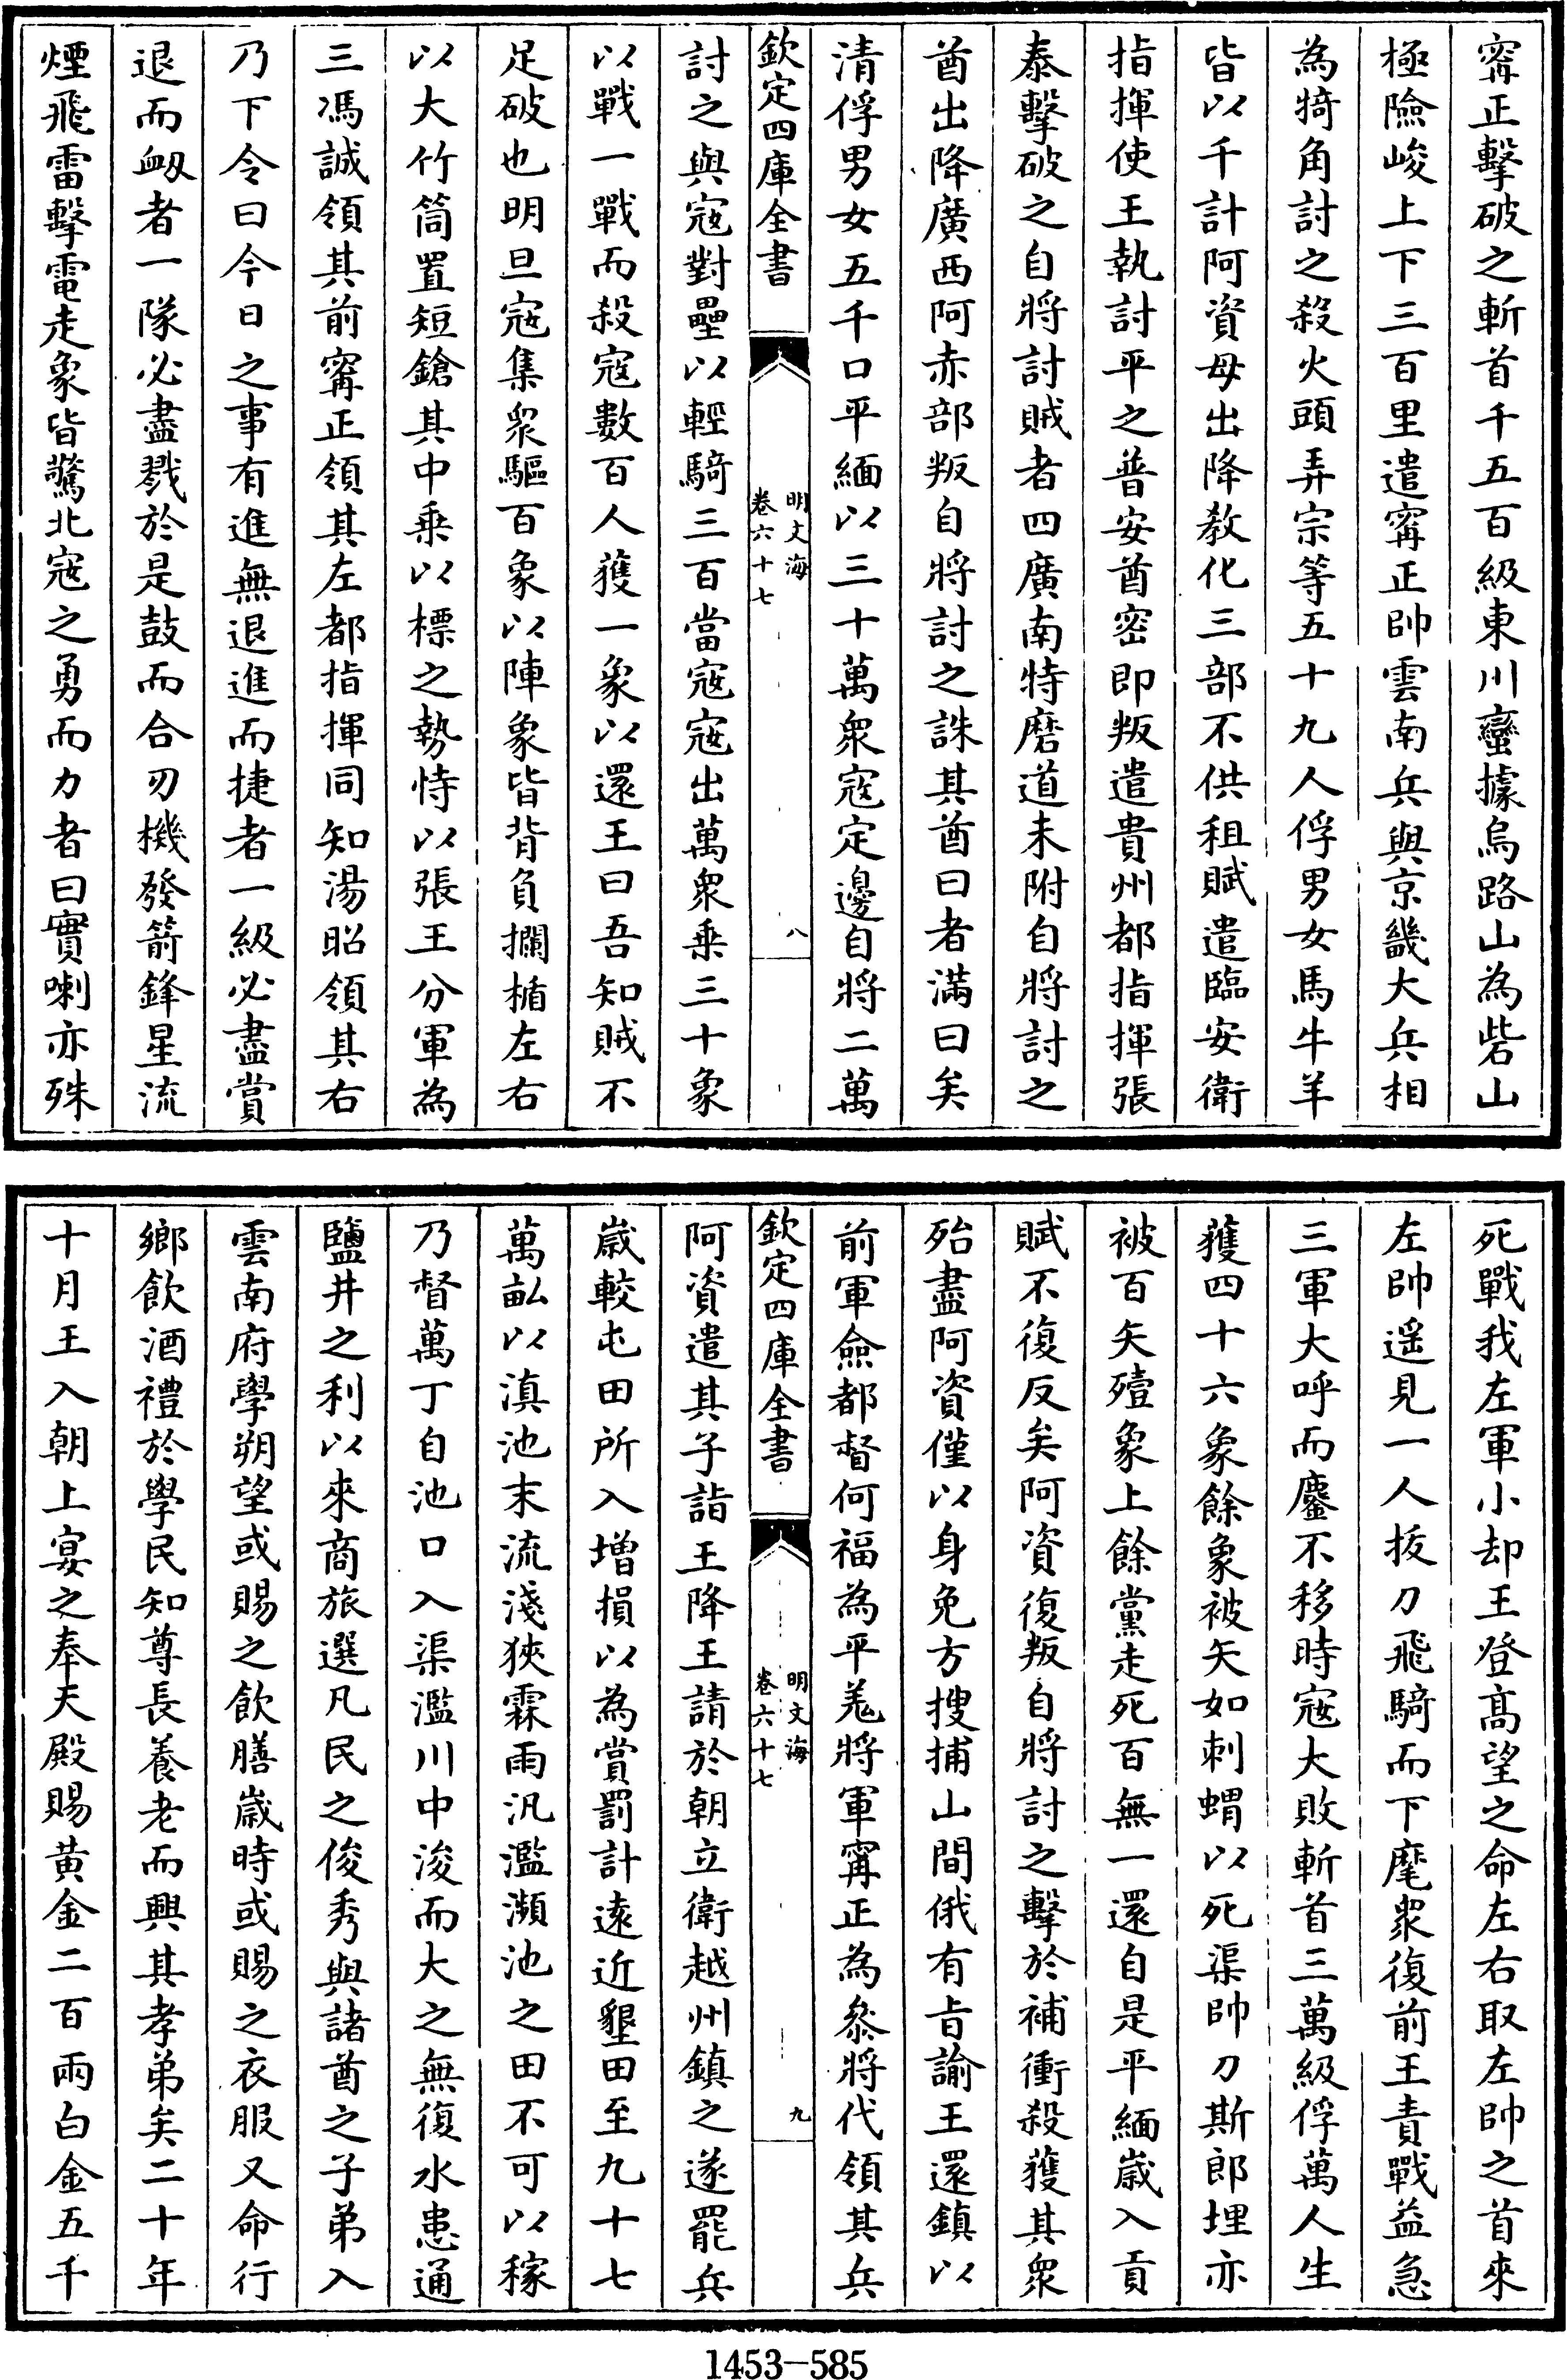 寗正擊破之斬首千五百級東川蠻據烏路山為砦山
極險峻上下三百里遣寗正帥雲南兵與京畿大兵相
為犄角討之殺火頭弄宗等五十九人俘男女馬牛羊
皆以千計阿資母出降教化三部不供租賦遣臨安衛
指揮使王執討平之普安酋密即叛遣貴州都指揮張
泰擊破之自將討賊者四廣南特磨道未附自將討之
酋出降廣西阿赤部叛自將討之誅其酋曰者滿曰矣
清俘男女五千口平緬以三十萬衆寇定邊自將二萬
欽定四庫全書
明文海
卷六十七
八
討之與寇對壘以輕騎三百當寇寇出萬衆乗三十象
以戰一戰而殺寇數百人獲一象以還王曰吾知賊不
足破也明旦寇集衆驅百象以陣象皆背負攔楯左右
以大竹筒置短鎗其中乗以標之勢恃以張王分軍為
三馮誠領其前寗正領其左都指揮同知湯昭領其右
乃下令曰今日之事有進無退進而捷者一級必盡賞
退而衂者一隊必盡戮於是鼓而合刃機發箭鋒星流
煙飛雷擊電走象皆驚北寇之勇而力者曰實喇亦殊
死戰我左軍小却王登髙望之命左右取左帥之首來
左帥遥見一人㧞刀飛騎而下麾衆復前王責戰益急
三軍大呼而鏖不移時寇大敗斬首三萬級俘萬人生
獲四十六象餘象被矢如刺蝟以死渠帥刀斯郎埋亦
被百矢殪象上餘黨走死百無一還自是平緬歳入貢
賦不復反矣阿資復叛自將討之擊於補衝殺獲其衆
殆盡阿資僅以身免方搜捕山間俄有㫖諭王還鎮以
前軍僉都督何福為平羌將軍寗正為叅將代領其兵
欽定四庫全書
明文海
卷六十七
九
阿資遣其子詣王降王請於朝立衛越州鎮之遂罷兵
歳較屯田所入增損以為賞罰計逺近墾田至九十七
萬畆以滇池末流淺狹霖雨汎濫瀕池之田不可以稼
乃督萬丁自池口入渠濫川中浚而大之無復水患通
鹽井之利以來商旅選凡民之俊秀與諸酋之子弟入
雲南府學朔望或賜之飲膳歳時或賜之衣服又命行
鄉飲酒禮於學民知尊長養老而興其孝弟矣二十年
十月王入朝上宴之奉天殿賜黄金二百兩白金五千
1453-585